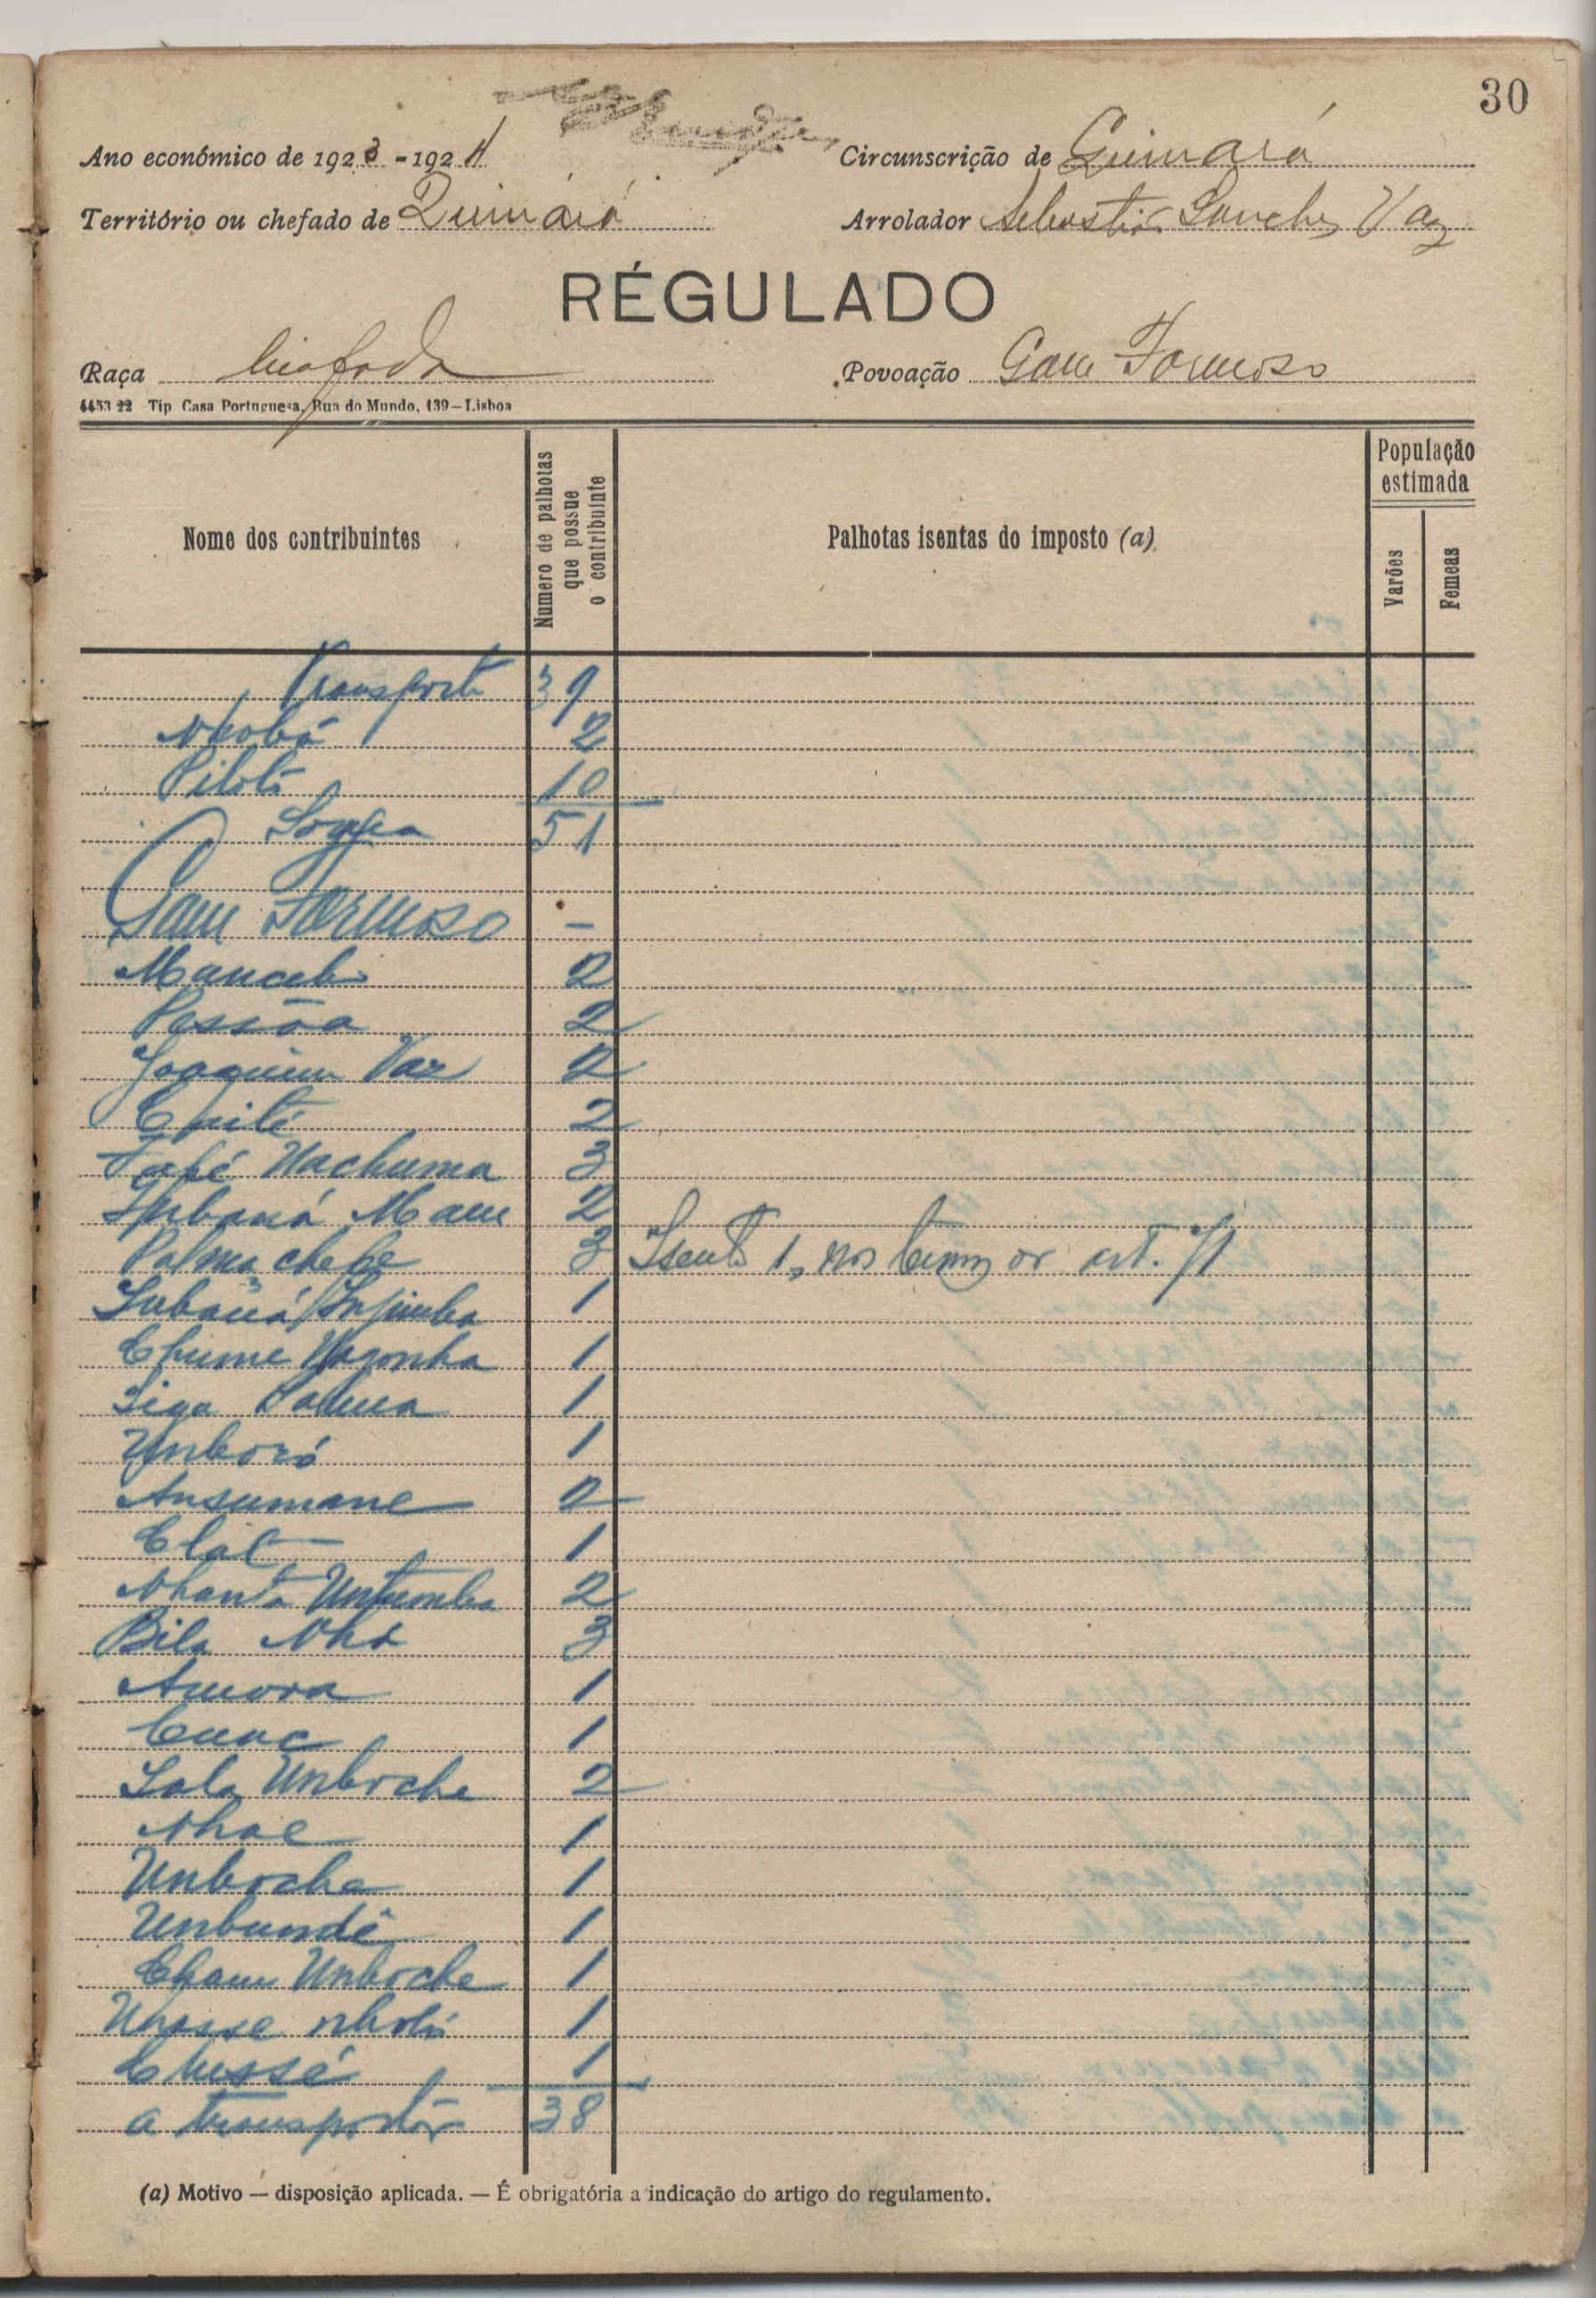 30
Ano económico de 1923-1924
Circunscrição de Quinará
Território ou chefado de Quinárá
Arrolador Sebastião Sanches Vaz
RÉGULADO
Raça biafada
Povoação Gam Formoso
4453 22 Tip Casa Portuguesa, Rua do Mundo, 139-Lisboa
Nome dos contribuintes
Numero de palhotas que possue o contribuinte
Palhotas isentas do imposto (a)
População estimada
Varões
Femeas
Transporte 39
Nhobá 2
10
Somma 51
Gam Formoso -
Mancebo 2
Pessôa 2
Joaquim Vaz 2
2
Uachuma 3
Mam 2
Palma chefe 3 Isento 1, nos termos do art. 71
1
1
Siga Palma 1
Unboró 1
Ansumane 2
1
Nhanta Untumba 2
Bila Nhá 3
Amora 1
Cuac 1
Sala Unboche 2
Nhae 1
Unboche 1
Unbundê 1
Cham Unboche 1
1
1
a transportar 38
(a) Motivo — disposição aplicada. — É obrigatória a indicação do artigo do regulamento.